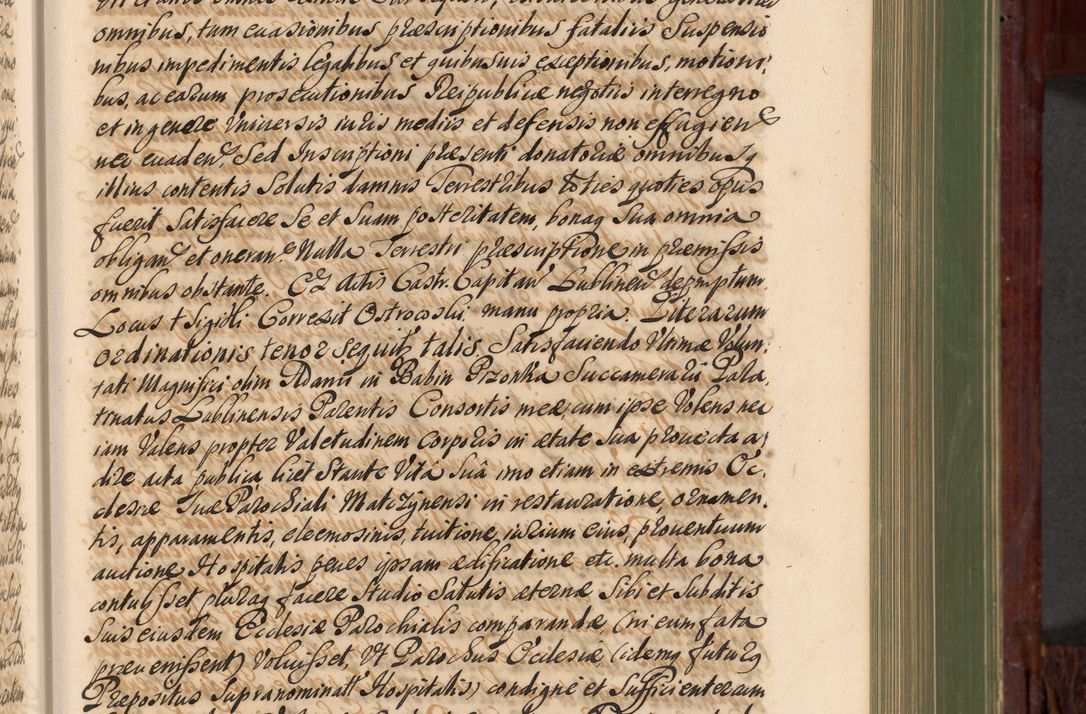 omnibus, tam euasionibus præscriptionibus fatalis Suspensio
nibus impedimentis legalibus et quibusuis exceptionibus, motioni,
bus, ac earum prosecutionibus Reipublicæ negotis interregno
et in genere Vniuersis iuris mediis et defensis non effugien
nec euaden. Sed Inscriptioni præsenti donatoriæ omnibusq
illius contentis Solutis damnis Terrestribus toties quoties opus
fuerit Satisfacere Se et Suam posteritatem, bonaq Sua omnia
obligan et oneran. Nulla Terrestri præscriptione in præmissis
omnibus obstante. Ex Actis Castr. Capitan Lublinen descriptum.
Locus + Sigilli Correxit Ostrowski manu propria. Literarum
ordinationis tenor sequit talis. Satisfaciendo Vltimæ Volun,
tati Magnifici olim Adami in Babin Pszonka Succamerarii Pala,
tinatus Lublinensis Parentis Consortis meæ, cum ipse Volens nec
iam Valens propter Valetudinem corporis in ætate Sua prouecta a,
dire acta publica licet Stante Vita Suâ imo etiam in extremis Ec,
clesiæ Suæ Parochiali Matczynensi in restauratione, ornamen,
tis, apparamentis, eleemosinis, tuitione iurium eius, prouentuum
auctione Hospitalis penes ipsam ædificatione etc. multa bona
contulisset pluraq facere Studio Salutis æternæ Sibi et Subditis
Suis eiusdem Ecclesiæ Parochialis comparandæ (ni eum fata
præuenissent) Voluisset, Vt Parochus Ecclesiæ (idemq futurq
Præpositus Supranominati Hospitalis) condigne et Sufficienter cum